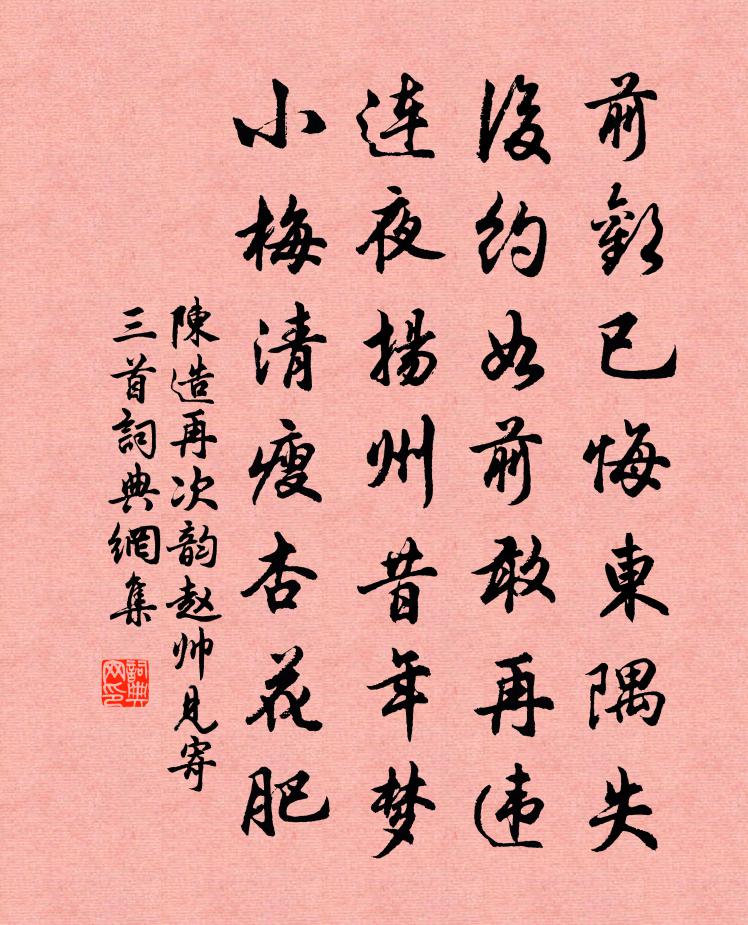 前歡已悔東隅失
後約如前敢再违
连夜揚州昔年梦
小梅清瘦杏花肥
陳造再次韵赵帅見寄
三首詞典網集
詞典网印